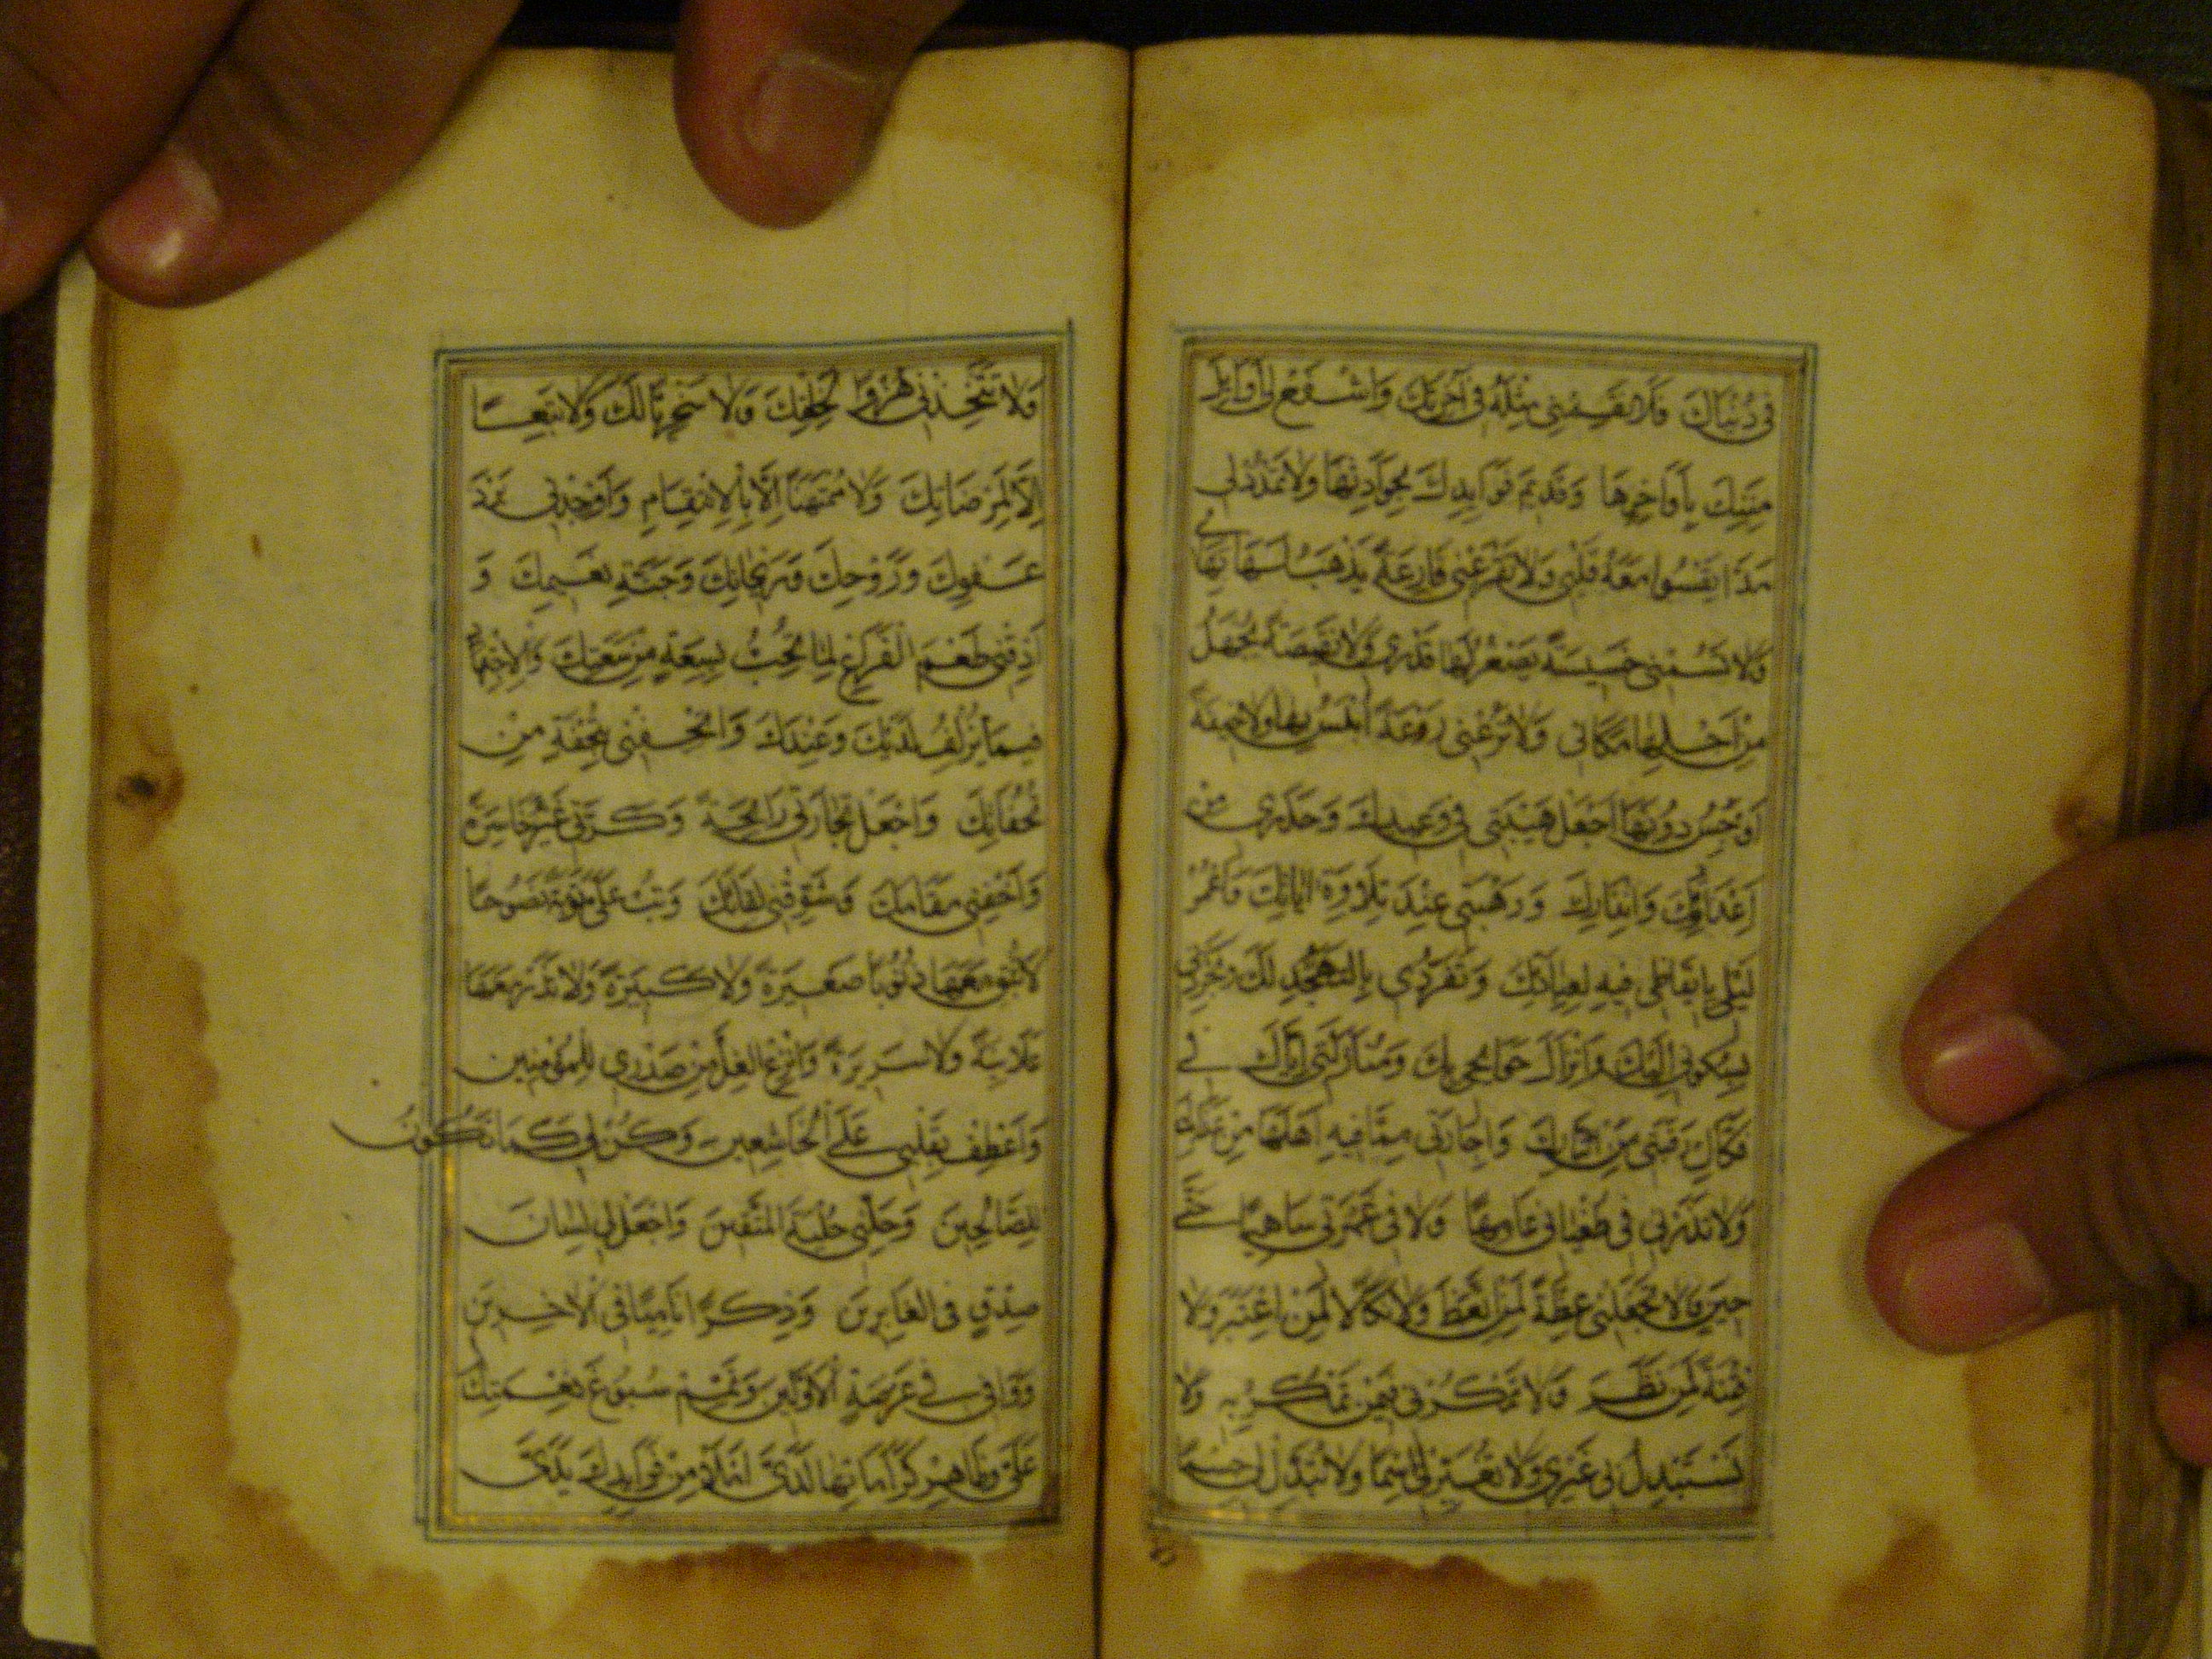 فِي دُنْيَاكَ فَلَا تَقِفْنِي مِثْلَهُ فِي آخِرَتِكَ وَاشْفَعْ لِي أَوَائِلَ
مِنَنِكَ بِأَوَاخِرِهَا وَقَدِيمَ فَوَائِدِكَ بِحَوَادِثِهَا وَلَا تَمْدُدْ لِي
مَدًّا يَقْسُوا مَعَهُ قَلْبِي وَلَا تَقْرَعْنِي قَارِعَةً يَذْهَبُ لَهَا بَهَائِي
وَلَا تَسُمْنِي خَسِيسَةً يَصْغُرُ لَهَا قَدْرِي وَلَا نَقِيصَةً يُجْهَلُ
مِنْ أَجْلِهَا مَكَانِي وَلَا تَرُعْنِي رَوْعَةً أُبْلِسُ بِهَا وَلَا خِيفَةً
أُوجِسُ دُونَهَا اجْعَلْ هَيْبَتِي فِي وَعِيدِكَ وَحَذَرِي مِنْ
إِعْذَارِكَ وَإِنْذَارِكَ وَرَهْبَتِي عِنْدَ تِلَاوَةِ آيَاتِكَ وَاعْمُرْ
لَيْلِي بِإِيقَاظِي فِيهِ لِعِبَادَتِكَ وَتَفَرُّدِي بِالتَّهَجُّدِ لَكَ وَتَجَرُّدِي
بِسُكُونِي إِلَيْكَ وَإِنْزَالِ حَوَائِجِي بِكَ وَمُنَازَلَتِي إِيَّاكَ فِي
فَكَاكِ رَقَبَتِي مِنْ نَارِكَ وَإِجَارَتِي مِمَّا فِيهِ أَهْلُهَا مِنْ عَذَابِكَ
وَلَا تَذَرْنِي فِي طُغْيَانِي عَامِهًا وَلَا فِي غَمْرَتِي سَاهِيًا حَتَّى
حِينٍ وَلَا تَجْعَلْنِي عِظَةً لِمَنِ اتَّعَظَ وَلَا نَكَالًا لِمَنِ اعْتَبَرَ وَلَا
فِتْنَةً لِمَنْ نَظَرَ وَلَا تَمْكُرْ بِي فِيمَنْ تَمْكُرُ بِهِ وَلَا
تَسْتَبْدِلْ بِي غَيْرِي وَلَا تُغَيِّرْ لِي اسْمًا وَلَا تُبَدِّلْ لِي جِسْمًا
وَلَا تَتَّخِذْنِي هُزُوًا لِخَلْقِكَ وَلَا سُخْرِيًّا لَكَ وَلَا تَبَعًا
إِلَّا لِمَرْضَاتِكَ وَلَا مُمْتَهَنًا إِلَّا بِالِانْتِقَامِ وَأَوْجِدْنِي بَرْدَ
عَفْوِكَ وَرَوْحِكَ وَرَيْحَانِكَ وَجَنَّةِ نَعِيمِكَ وَ
أَذِقْنِي طَعْمَ الْفَرَاغِ لِمَا تُحِبُّ بِسَعَةٍ مِنْ سَعَتِكَ وَالِاجْتِهَادِ
فِيمَا يُزْلِفُ لَدَيْكَ وَعِنْدَكَ وَأَتْحِفْنِي بِتُحْفَةٍ مِنْ
تُحَفَاتِكَ وَاجْعَلْ تِجَارَتِي رَابِحَةً وَكَرَّتِي غَيْرَ خَاسِرَةٍ
وَأَخِفْنِي مَقَامَكَ وَشَوِّقْنِي لِقَاءَكَ وَتُبْ عَلَيَّ تَوْبَةً نَصُوحًا
لَا تُبْقِ مَعَهَا ذُنُوبًا صَغِيرَةً وَلَا كَبِيرَةً وَلَا تَذَرْ مَعَهَا
عَلَانِيَةً وَلَا سَرِيرَةً وَانْزِعِ الْغِلَّ مِنْ صَدْرِي لِلْمُؤْمِنِينَ
وَاعْطِفْ بِقَلْبِي عَلَى الْخَاشِعِينَ وَكُنْ لِي كَمَا تَكُونُ
لِلصَّالِحِينَ وَحَلِّنِي حِلْيَةَ الْمُتَّقِينَ وَاجْعَلْ لِي لِسَانَ
صِدْقٍ فِي الْغَابِرِينَ وَذِكْرًا نَامِيًا فِي الْآخِرِينَ
وَوَافِ بِي عَرْصَةَ الْأَوَّلِينَ وَتَمِّمْ سُبُوغَ نِعْمَتِكَ
عَلَيَّ وَظَاهِرْ كَرَامَاتِهَا لَدَيَّ امْلَأْ مِنْ فَوَائِدِكَ يَدَيَّ